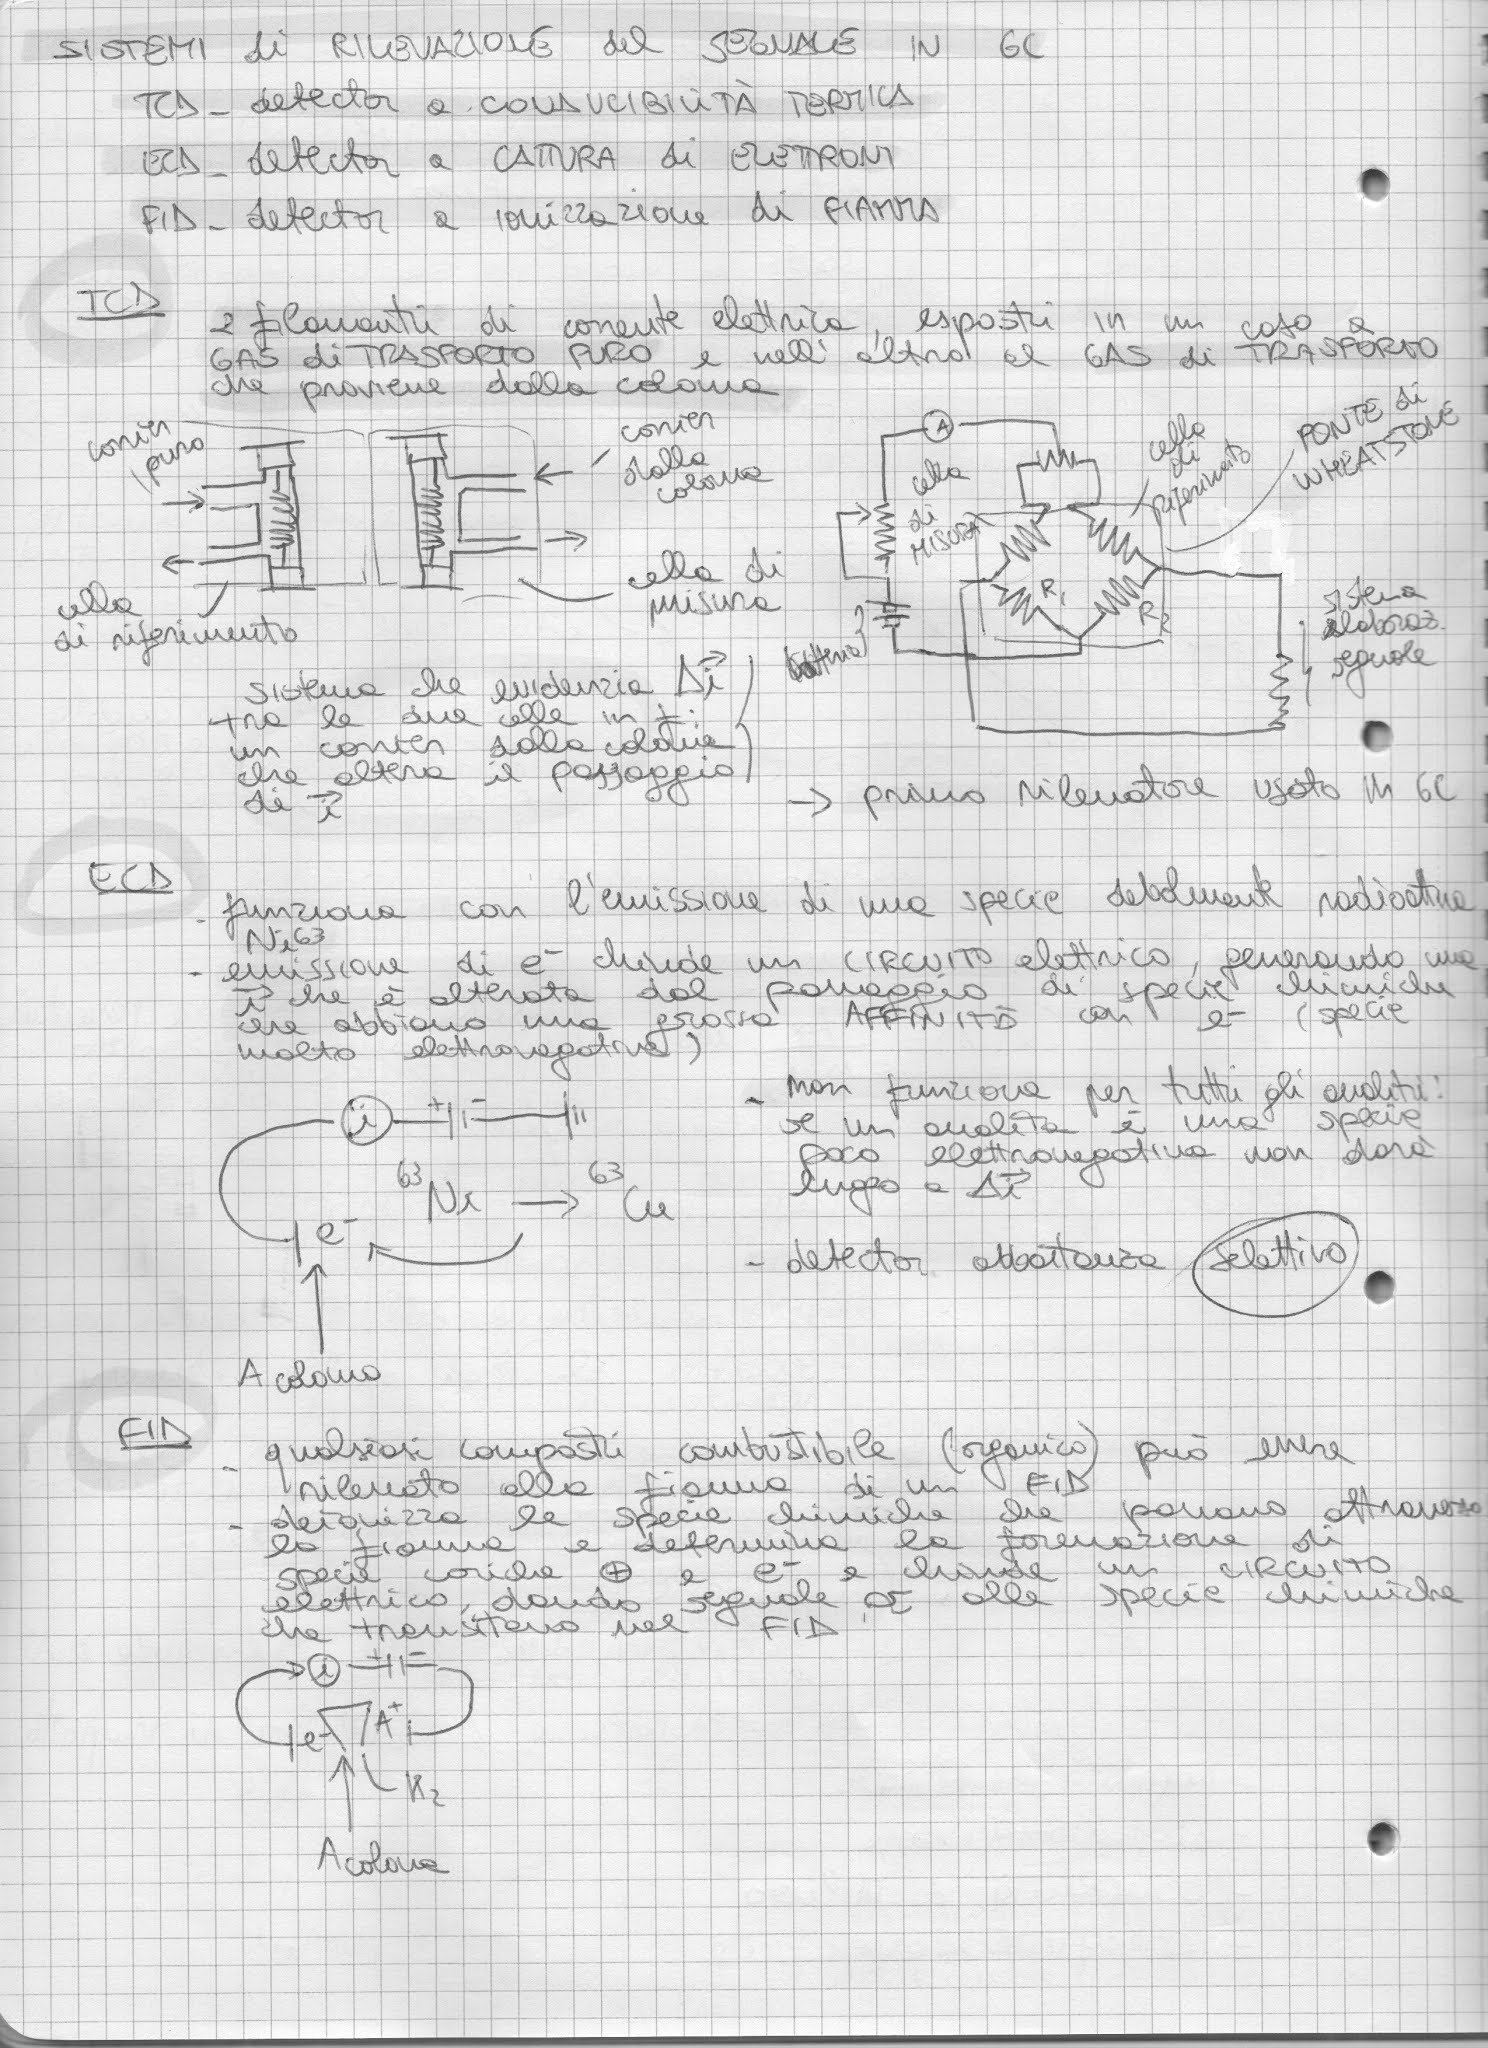 SISTEMI di RILEVAZIONE del SEGNALE IN GC
TCD - detector a CONDUCIBILITÀ TERMICA
ECD - detector a CATTURA di ELETTRONI
FID - detector a ionizzazione di FIAMMA
TCD
2 filamenti di corrente elettrica, esposti in un caso a
GAS di TRASPORTO PURO e nell'altro al GAS di TRASPORTO
che proviene dalla colonna
carrier
puro
carrier
dalla
colonna
cella
di riferimento
cella di
misura
A
cella
di
MISURA
cella
di
riferimento
PONTE di
WHEATSTONE
R1
R2
batteria
sistema
elaboraz.
segnale
sistema che evidenzia Δi
tra le due celle in f:
un carrier dalla colonna
che altera il passaggio
di i
→ primo rilevatore usato in GC
ECD
- funziona con l'emissione di una specie debolmente radioattiva
Ni63
- emissione di e- chiude un CIRCUITO elettrico, generando una
i che è alterata dal passaggio di specie chimiche
che abbiano una grossa AFFINITÀ con e- (specie
molto elettronegative)
i + -
63Ni → 63Cu
e-
A colonna
- non funziona per tutti gli analiti:
se un analita è una specie
poco elettronegativa non darà
luogo a Δi
- detector abbastanza selettivo
FID
- qualsiasi composti combustibile (organico) può essere
rilevato alla fiamma di un FID
- ionizza le specie chimiche che passano attraverso
la fiamma e determina la formazione di
specie cariche ⊕ e e- e chiude un CIRCUITO
elettrico, dando segnale alle specie chimiche
che transitano nel FID
i + -
e- A+
H2
A colonna